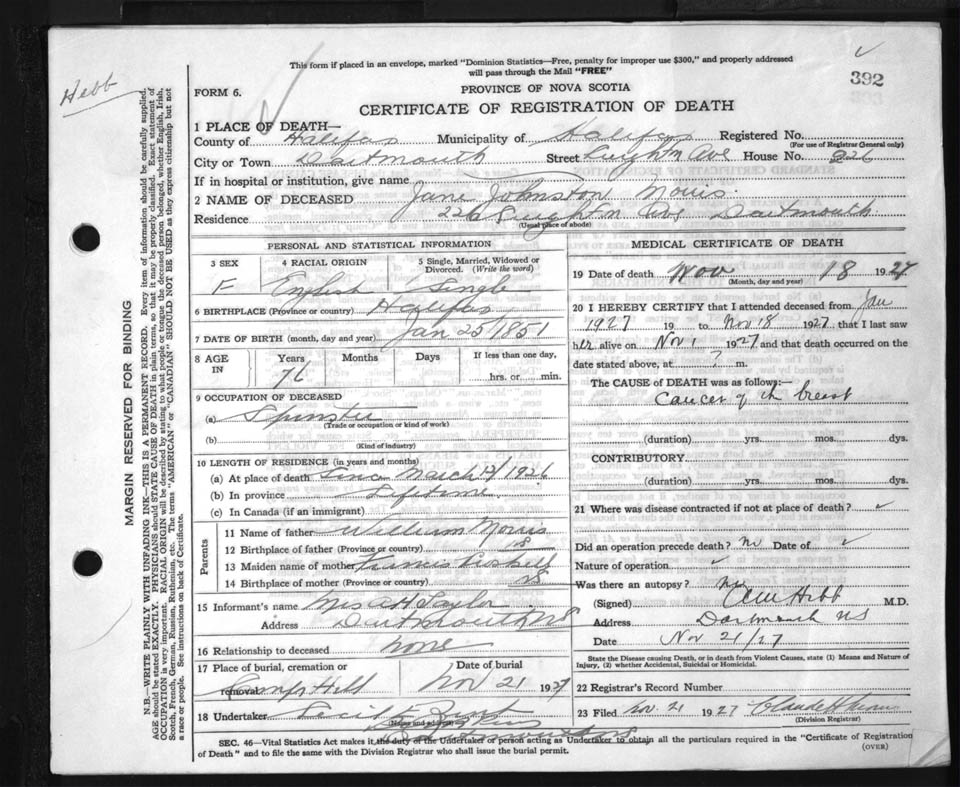 This form if placed in an envelope, marked "Dominion Statistics—Free, penalty for improper use $300," and properly addressed
will pass through the Mail "FREE"
392
Hebb
FORM 6.
PROVINCE OF NOVA SCOTIA
CERTIFICATE OF REGISTRATION OF DEATH
1 PLACE OF DEATH—
County of Halifax Municipality of Halifax Registered No.
(For use of Registrar General only)
City or Town Dartmouth Street Leighton Ave House No. 226
If in hospital or institution, give name
2 NAME OF DECEASED Jane Johnston Morris.
Residence 226 Leighton Ave Dartmouth
(Usual place of abode)
PERSONAL AND STATISTICAL INFORMATION
3 SEX
F
4 RACIAL ORIGIN
English
5 Single, Married, Widowed or
Divorced. (Write the word)
Single
6 BIRTHPLACE (Province or country) Halifax
7 DATE OF BIRTH (month, day and year) Jan 25 1851
8 AGE
IN
Years
76
Months
Days
If less than one day,
hrs. or min.
9 OCCUPATION OF DECEASED
(a) Spinster
(Trade or occupation or kind of work)
(b)
(Kind of industry)
10 LENGTH OF RESIDENCE (in years and months)
(a) At place of death Since March 1926
(b) In province Lifetime
(c) In Canada (if an immigrant)
Parents
11 Name of father William Morris
12 Birthplace of father (Province or country) NS
13 Maiden name of mother
14 Birthplace of mother (Province or country) NS
15 Informant's name Mrs A H Taylor
Address Dartmouth NS
16 Relationship to deceased none
17 Place of burial, cremation or
removal Camp Hill
Date of burial
Nov 21 1927
18 Undertaker
(Name and address)
MEDICAL CERTIFICATE OF DEATH
19 Date of death Nov 18 1927
(Month, day and year)
20 I HEREBY CERTIFY that I attended deceased from Jan
1927 19 to Nov 18 1927, that I last saw
her alive on Nov 1 1927 and that death occurred on the
date stated above, at ? m.
The CAUSE OF DEATH was as follows:—
Cancer of the breast
(duration) yrs. mos. dys.
CONTRIBUTORY
(duration) yrs. mos. dys.
21 Where was disease contracted if not at place of death?
Did an operation precede death? No Date of
Nature of operation
Was there an autopsy? No
(Signed) Hebb M.D.
Address Dartmouth NS
Date Nov 21/27
State the Disease causing Death, or in death from Violent Causes, state (1) Means and Nature of
Injury, (2) whether Accidental, Suicidal or Homicidal.
22 Registrar's Record Number
23 Filed Nov. 21 1927
(Division Registrar)
SEC. 46—Vital Statistics Act makes it the duty of the Undertaker or person acting as Undertaker to obtain all the particulars required in the "Certificate of Registration
of Death" and to file the same with the Division Registrar who shall issue the burial permit.
(OVER)
MARGIN RESERVED FOR BINDING
N.B.—WRITE PLAINLY WITH UNFADING INK—THIS IS A PERMANENT RECORD. Every item of information should be carefully supplied.
AGE should be stated EXACTLY. PHYSICIANS should STATE CAUSE OF DEATH in plain terms, so that it may be properly classified. Exact statement of
OCCUPATION is very important. RACIAL ORIGIN will be described by stating to what people or tongue the deceased person belonged, whether English, Irish,
Scotch, French, German, Russian, Ruthenian, etc. The terms "AMERICAN" or "CANADIAN" SHOULD NOT BE USED as they express citizenship but not
a race or people. See instructions on back of Certificate.